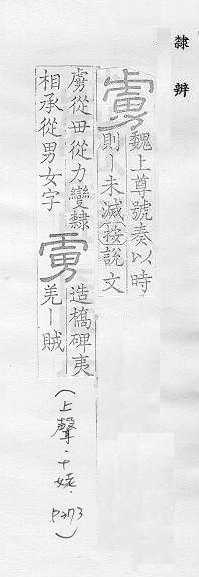 隸辨
虜魏上尊號奏以時
則丨未滅按說文
虜從毌從力變隸
相承從男女字
虜造橋碑夷
羌丨賊
(上聲・十姥・P273)